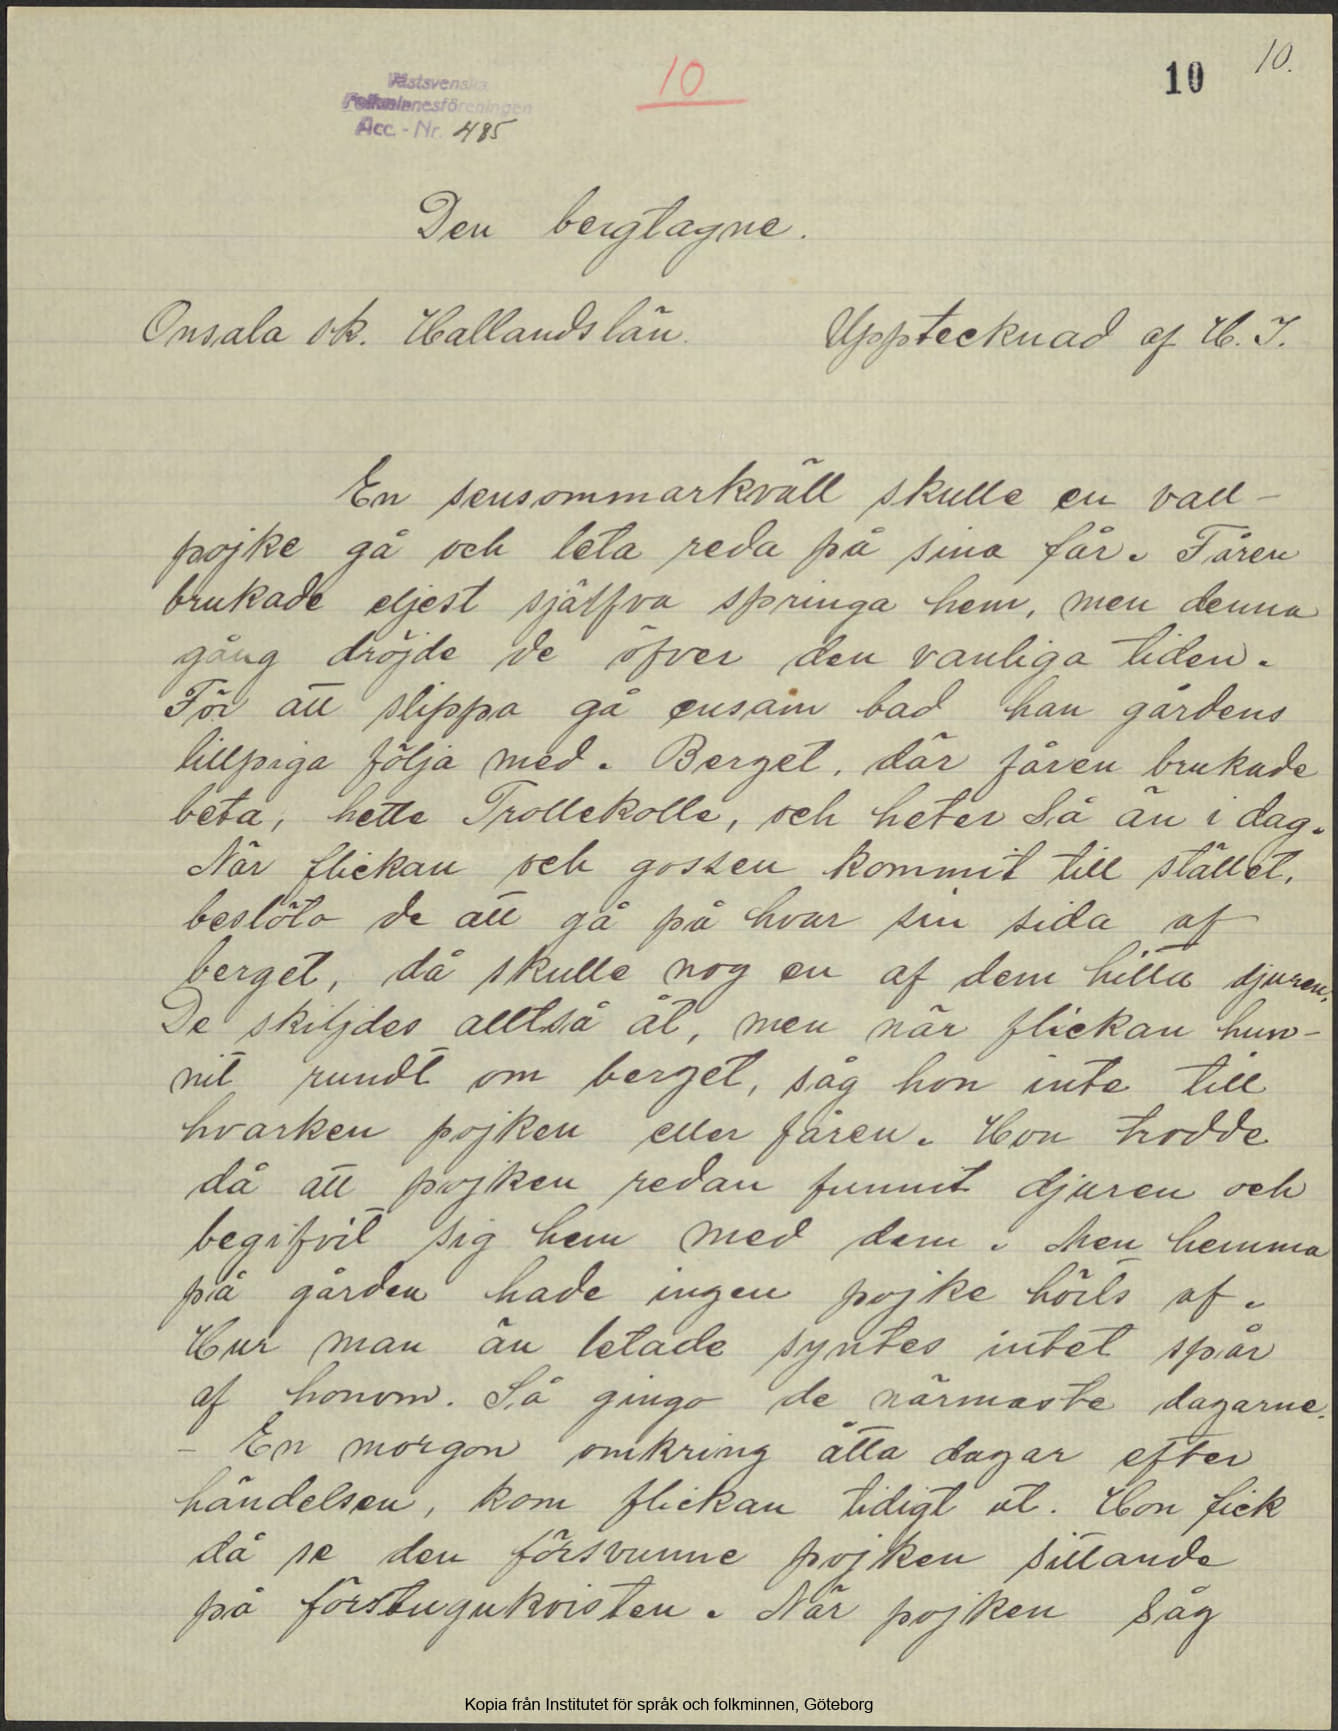 10
10
10.
Västsvenska
Folkminnesföreningen
Acc.-Nr. 485
Den bergtagne.
Onsala sk. Hallandslän.
Upptecknad af H. I.
En sensommarkväll skulle en vall-
pojke gå och leta reda på sina får. Fåren
brukade eljest själfva springa hem, men denna
gång dröjde de öfver den vanliga tiden.
För att slippa gå ensam bad han gårdens
lillpiga följa med. Berget, där fåren brukade
beta, hette Trollekolle, och heter så än i dag.
När flickan och gossen kommit till stället,
beslöto de att gå på hvar sin sida af
berget, då skulle nog en af dem hitta djuren.
De skiljdes alltså åt, men när flickan hun-
nit rundt om berget, såg hon inte till
hvarken pojken eller fåren. Hon trodde
då att pojken redan funnit djuren och
begifvit sig hem med dem. Men hemma
på gården hade ingen pojke hörts af.
Hur man än letade syntes intet spår
af honom. Så gingo de närmaste dagarne.
- En morgon omkring åtta dagar efter
händelsen, kom flickan tidigt ut. Hon fick
då se den försvunne pojken sittande
på förstugukvisten. När pojken såg
Kopia från Institutet för språk och folkminnen, Göteborg